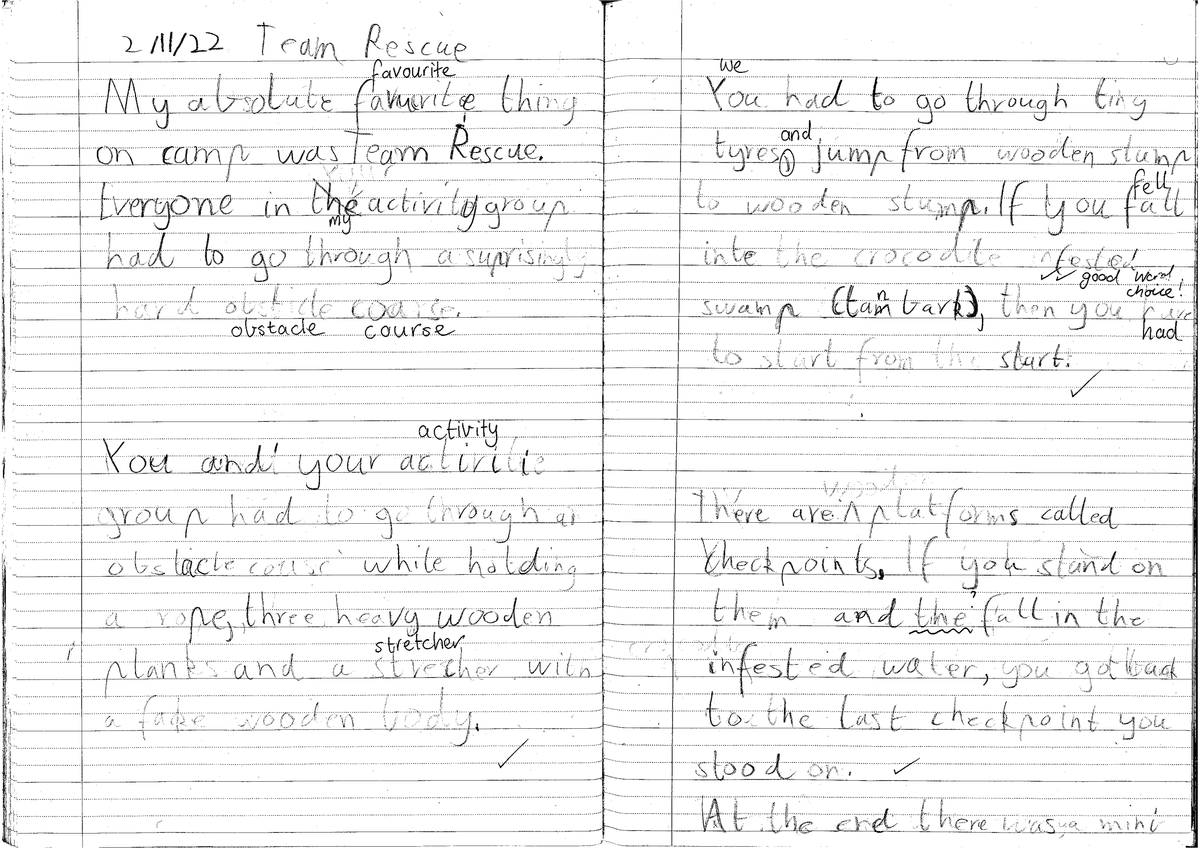 2/11/22 Team Rescue
favourite
My absolute favuirite thing
on camp was Team Rescue.
Everyone in the activity group
my
had to go through a suprisingly
hard obsticle coarse.
obstacle course
activity
You and your activitie
group had to go through a
obstacle course while holding
a rope, three heavy wooden
stretcher
planks and a strecher with
a fake wooden body.
we
You had to go through tiny
and
tyres, jump from wooden stump
fell
to wooden stump. If you fall
into the crocodile infested
good word
choice!
swamp (tanbark), then you
had
to start from the start.
There are platforms called
checkpoints. If you stand on
them and the fall in the
infested water, you go back
to the last checkpoint you
stood on.
At the end there was a mini